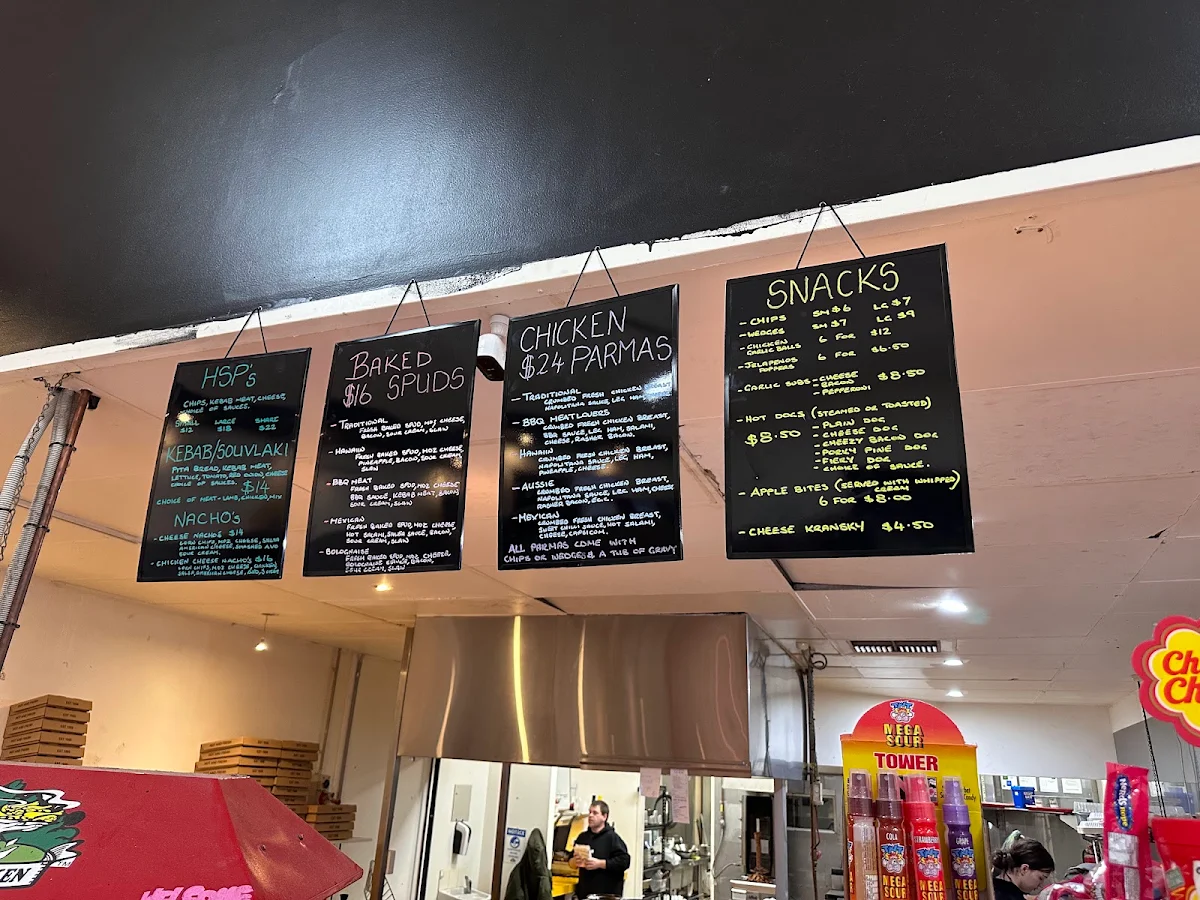 HSP's
CHIPS, KEBAB MEAT, CHEESE,
CHOICE OF SAUCES.
SMALL LARGE SHARE
$12 $18 $22
KEBAB/SOUVLAKI
PITA BREAD, KEBAB MEAT,
LETTUCE, TOMATO, RED ONION, CHEESE
CHOICE OF SAUCES.
$14
CHOICE OF MEAT - LAMB, CHICKEN, MIX
NACHO'S
- CHEESE NACHO'S $14
CORN CHIPS, MOZ CHEESE, SALSA
AMERICAN CHEESE, SMASHED AVO
SOUR CREAM.
- CHICKEN CHEESE NACHO'S $16
CORN CHIPS, MOZ CHEESE, CHICKEN,
BAKED
$16 SPUDS
- TRADITIONAL
FRESH BAKED SPUD, MOZ CHEESE,
BACON, SOUR CREAM, SLAW
- HAWAIIN
FRESH BAKED SPUD, MOZ CHEESE
PINEAPPLE, BACON, SOUR CREAM,
SLAW
- BBQ MEAT
FRESH BAKED SPUD, MOZ CHEESE
BBQ SAUCE, KEBAB MEAT, BACON
SOUR CREAM, SLAW
- MEXICAN
FRESH BAKED SPUD, MOZ CHEESE,
HOT SALAMI, SALSA SAUCE, BACON,
SOUR CREAM, SLAW
- BOLOGNAISE
FRESH BAKED SPUD, MOZ CHEESE
BOLOGNAISE SAUCE, BACON,
SOUR CREAM, SLAW
CHICKEN
$24 PARMAS
- TRADITIONAL
CRUMBED FRESH CHICKEN BREAST
NAPOLITANA SAUCE, LEG HAM,
- BBQ MEATLOVERS
CRUMBED FRESH CHICKEN BREAST,
BBQ SAUCE, LEG HAM, SALAMI,
CHEESE, RASHER BACON.
- HAWAIIN
CRUMBED FRESH CHICKEN BREAST,
NAPOLITANA SAUCE, LEG HAM,
PINEAPPLE, CHEESE.
- AUSSIE
CRUMBED FRESH CHICKEN BREAST,
NAPOLITANA SAUCE, LEG HAM, CHEESE
RASHER BACON, EGG.
- MEXICAN
CRUMBED FRESH CHICKEN BREAST,
SWEET CHILLI SAUCE, HOT SALAMI,
CHEESE, CAPSICUM.
ALL PARMAS COME WITH
CHIPS OR WEDGES & A TUB OF GRAVY
SNACKS
- CHIPS SM $6 LG $7
- WEDGES SM $7 LG $9
- CHICKEN GARLIC BALLS 6 FOR $12
- JALAPENOS POPPERS 6 FOR $6.50
- GARLIC SUBS - CHEESE $8.50
- BACON
- PEPPERONI
- HOT DOGS (STEAMED OR TOASTED)
$8.50 - PLAIN DOG
- CHEESE DOG
- CHEEZY BACON DOG
- PORKY PINE DOG
- FIERY DOG
- CHOICE OF SAUCE.
- APPLE BITES (SERVED WITH WHIPPED CREAM)
6 FOR $8.00
- CHEESE KRANSKY $4.50
MEGA
SOUR
TOWER
COLA
STRAWBERRY
GRAPE
MEGA
SOUR
MEGA
SOUR
MEGA
SOUR
Ch
Ch
WELCOME